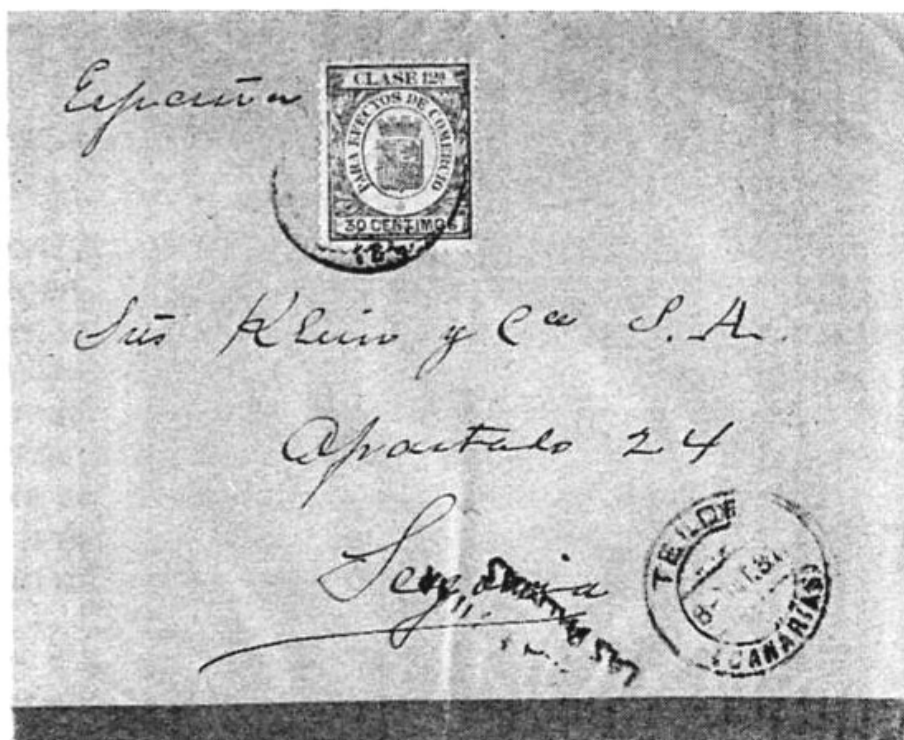 España
CLASE 12ª
PARA EFECTOS DE COMERCIO
30 CENTIMOS
Sres Klein y Cª S. A.
Apartado 24
Segovia
TELDE
(CANARIAS)